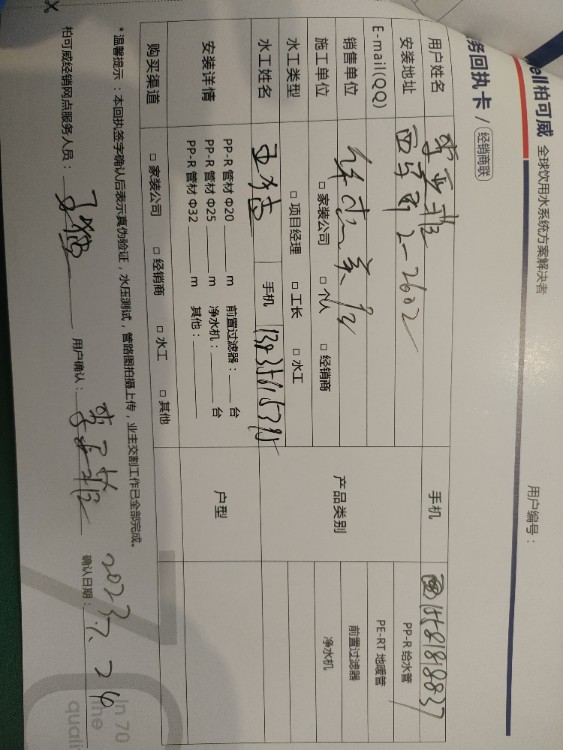 ell 柏可威 全球饮用水系统方案解决者
务回执卡 / 经销商联
用户编号：
用户姓名 李亚非 手机
安装地址 2-2602 PP-R 给水管
E-mail(QQ) PE-RT 地暖管
销售单位 产品类别 前置过滤器
施工单位 □ 家装公司 □ 个人 □ 经销商 净水机
水工类型 □ 项目经理 □ 工长 □ 水工
水工姓名 手机
安装详情 PP-R 管材 Φ20 m 前置过滤器： 台 户型
PP-R 管材 Φ25 m 净水机： 台
PP-R 管材 Φ32 m 其他：
购买渠道 □ 家装公司 □ 经销商 □ 水工 □ 其他
*温馨提示：本回执签字确认后表示真伪验证，水压测试，管路图拍摄上传，业主交割工作已全部完成。
柏可威经销网点服务人员： 用户确认： 李亚非 确认日期： 2023.7.24
In 70
the
quali